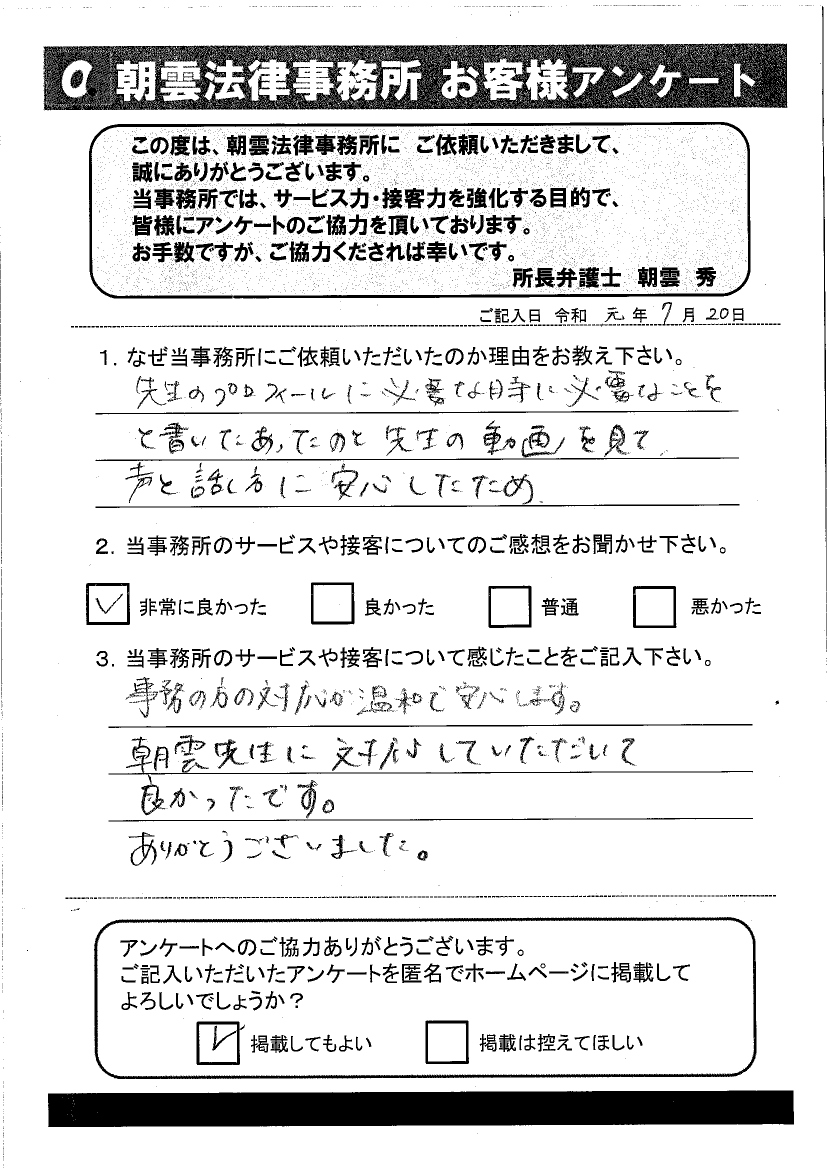 朝雲法律事務所 お客様アンケート
この度は、朝雲法律事務所に ご依頼いただきまして、
誠にありがとうございます。
当事務所では、サービス力・接客力を強化する目的で、
皆様にアンケートのご協力を頂いております。
お手数ですが、ご協力くだされば幸いです。
所長弁護士 朝雲 秀
ご記入日 令和 元 年 7 月 20 日
1. なぜ当事務所にご依頼いただいたのか理由をお教え下さい。
先生のプロフィールに必要な時に必要なことを
と書いたあったのと先生の動画を見て
声と話し方に安心したため
2. 当事務所のサービスや接客についてのご感想をお聞かせ下さい。
非常に良かった 良かった 普通 悪かった
3. 当事務所のサービスや接客について感じたことをご記入下さい。
事務の方の対応が温和で安心します。
朝雲先生に対応していただいて
良かったです。
ありがとうございました。
アンケートへのご協力ありがとうございます。
ご記入いただいたアンケートを匿名でホームページに掲載して
よろしいでしょうか？
掲載してもよい 掲載は控えてほしい